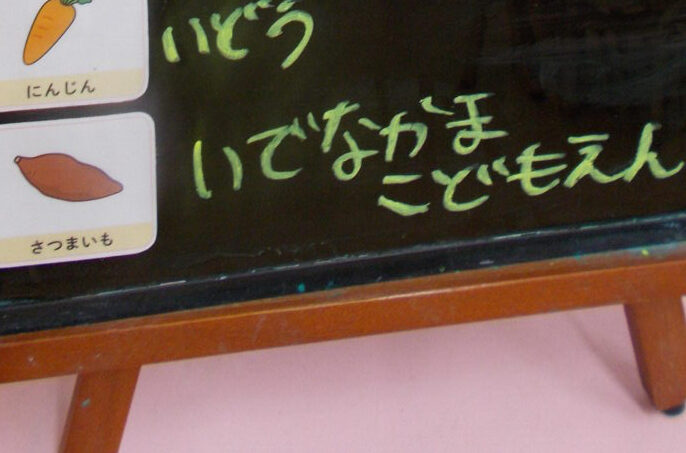 いどう
にんじん
いでなかま
こどもえん
さつまいも